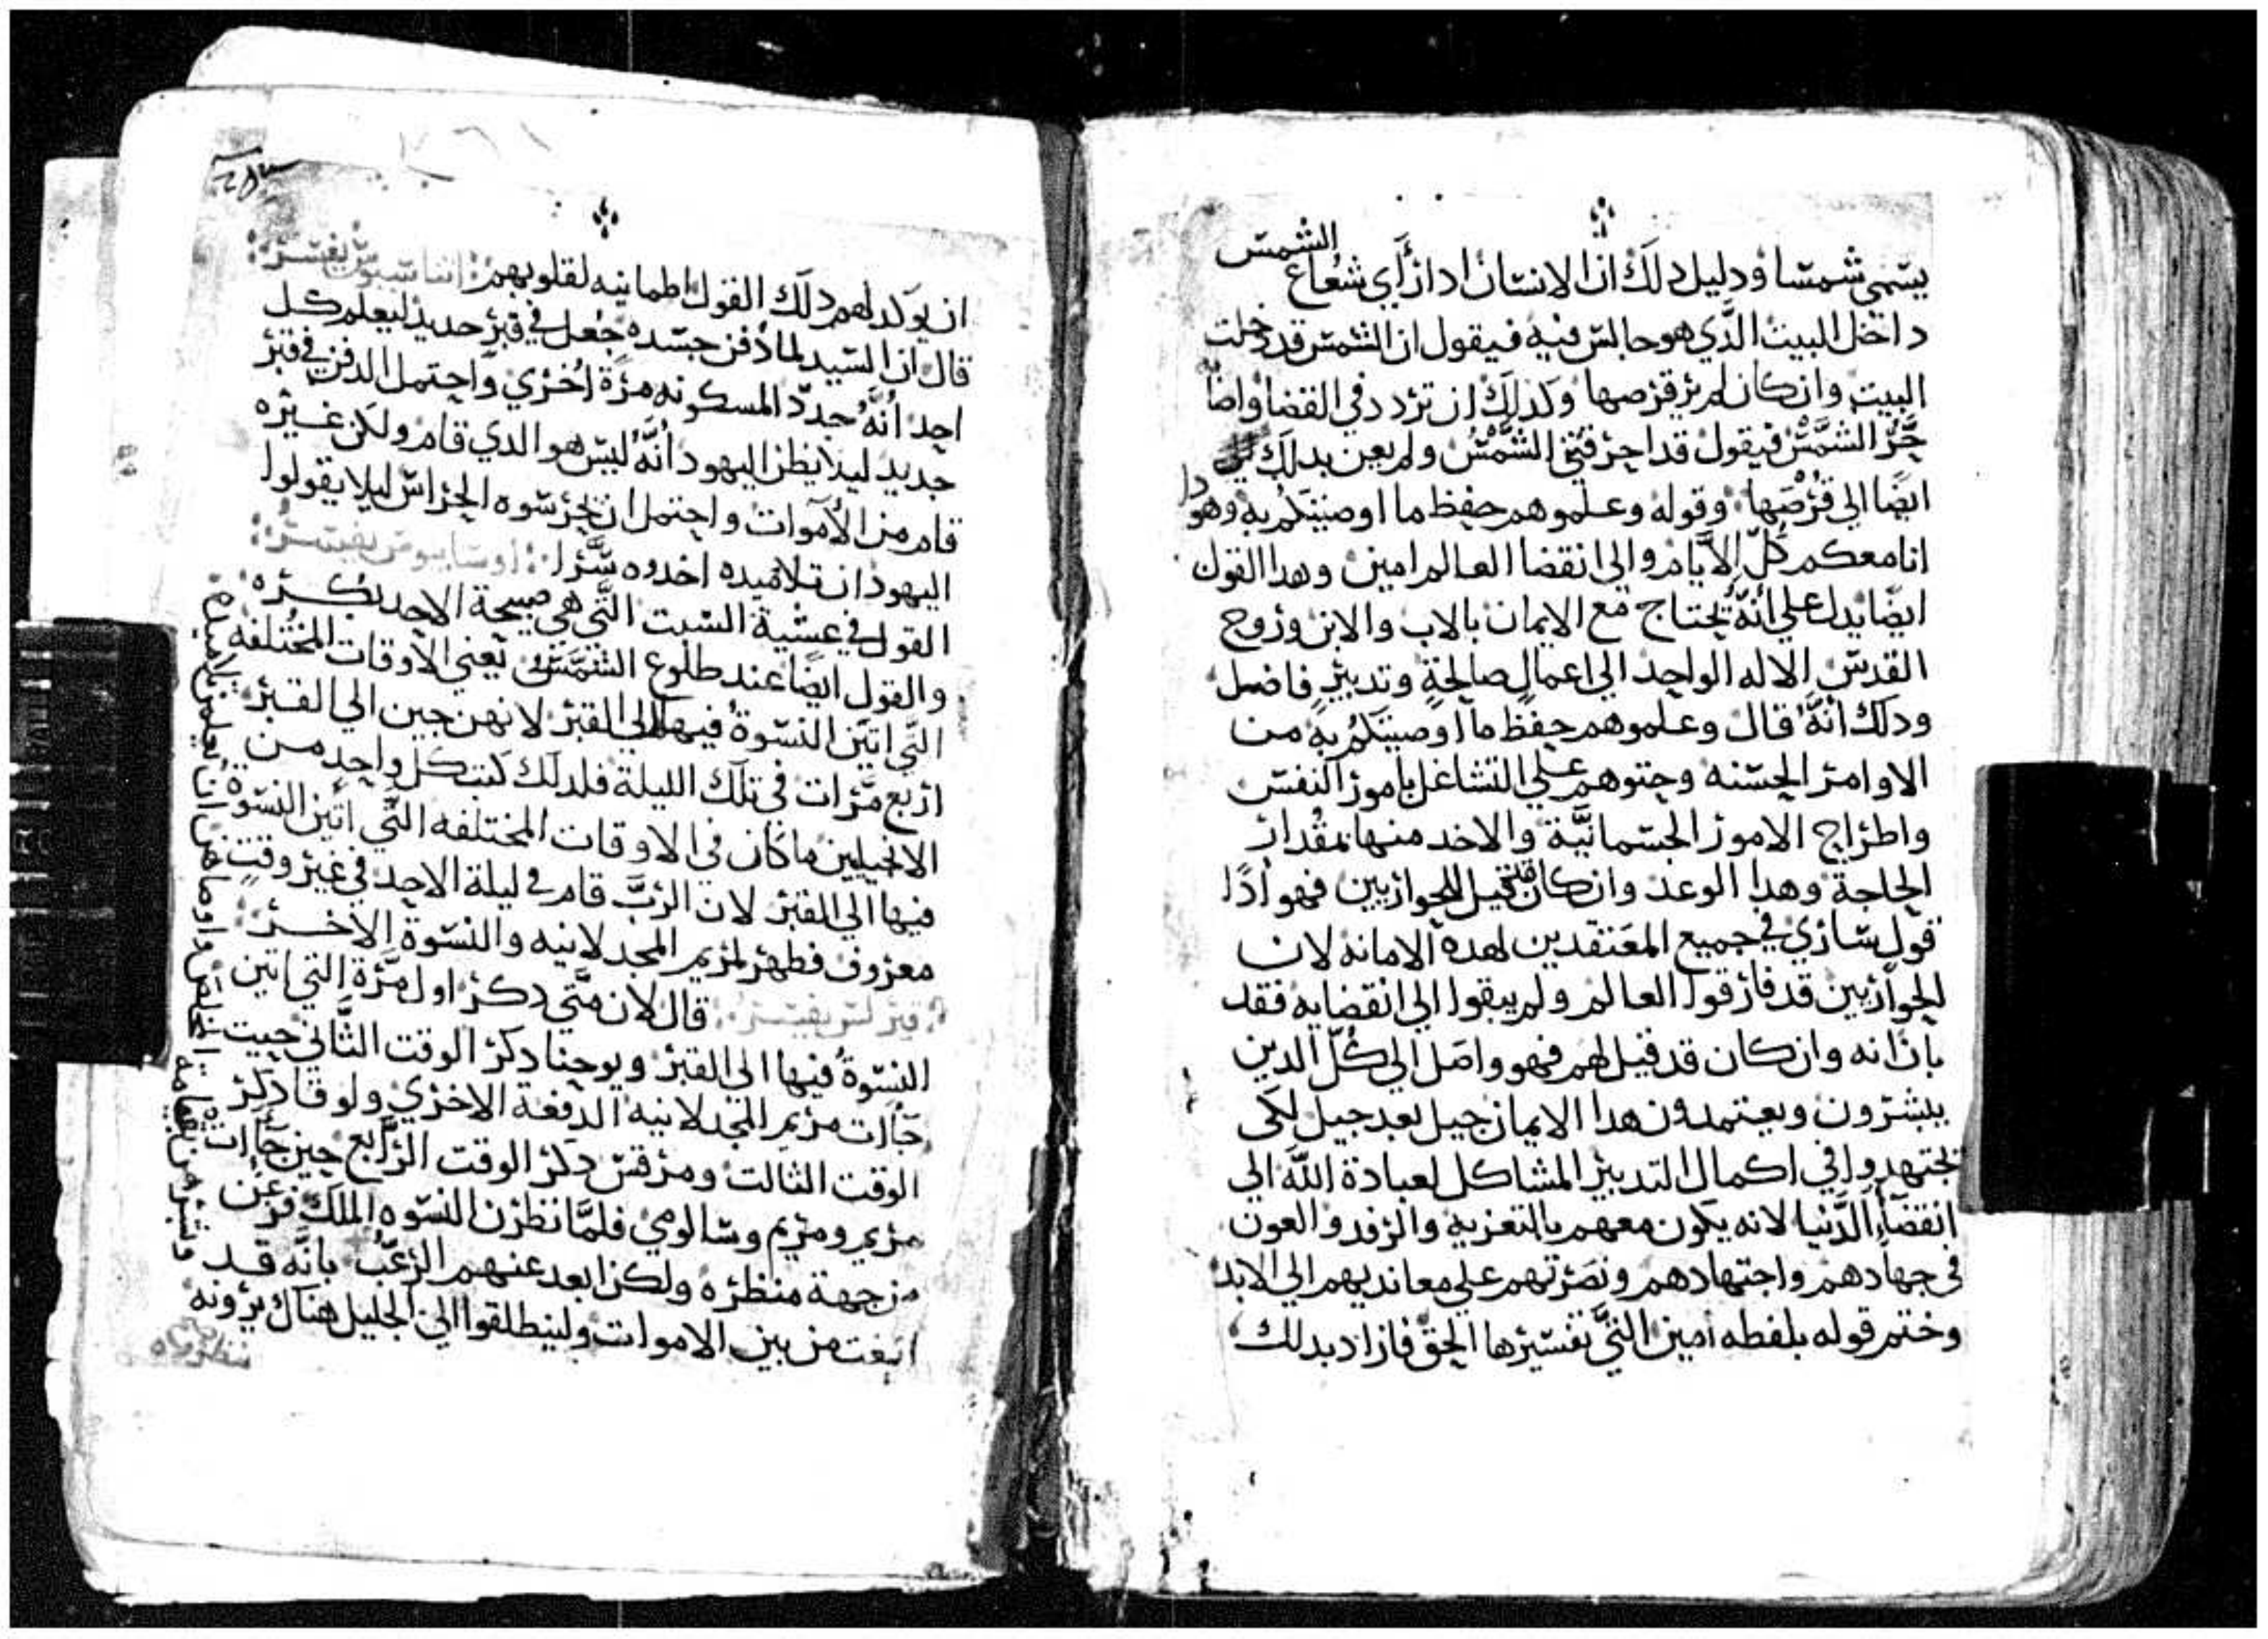 الشمس
يسمي شمسا ودليل دلك ان الانسان ادا راي شعاع
داخل البيت الدي هو جالس فيه فيقول ان الشمس قد دخلت
البيت وان كان لم ير قرصها وكدلك ان تردد في القضا واصا
حر الشمس فيقول قد احرقتني الشمس ولم يعن بدلك
ايضا الي قرصها وقوله وعلموهم حفظ ما اوصيتكم به وهودا
انا معكم كل الايام والي انقضا العالم امين وهدا القول
ايضا يدل علي انه يحتاج مع الايمان بالاب والابن وروح
القدس الاله الواحد الي اعمال صالحة وتدبير فاضل
ودلك انه قال وعلموهم حفظ ما اوصيتكم به من
الاوامر الحسنه وحتوهم علي التشاغل بامور النفس
واطراح الامور الجسمانية والاخد منها بمقدار
الحاجة وهدا الوعد وان كان قيل للحواريين فهو ادا
قول ساري في جميع المعتقدين لهده الامانه لان
الحواريين قد فارقوا العالم ولم يبقوا الي انقضايه فقد
بان انه وان كان قد قيل لهم فهو واصل الي كل الدين
يبشرون ويعتمدون هدا الايمان جيل بعد جيل لكي
يجتهدوا في اكمال التدبير المشاكل لعبادة الله الي
انقضاء الدنيا لانه يكون معهم بالتعزيه والرفد والعون
في جهادهم واجتهادهم ونصرتهم علي معانديهم الي الابد
وختم قوله بلفظه امين التي تفسيرها الحق فاراد بدلك
ان يوكد لهم دلك القول اطمانيه لقلوبهم يفسر
قال ان السيد لما دفن جسده جعل في قبر جديد ليعلم كل
احد انه جدد المسكونه مرة اخري واحتمل الدفن في قبر
جديد ليلا يظن اليهود انه ليس هو الدي قام ولكن غيره
قام من الاموات واحتمل ان يحرسوه الحراس ليلا يقولوا
اليهود ان تلاميده اخدوه سرا اوسابيوس يفسر
القول في عشية السبت التي هي صبيحة الاحد بكره
والقول ايضا عند طلوع الشمس يعني الاوقات المختلفه
التي اتين النسوة فيها الي القبر لانهن جين الي القبر
اربع مرات في تلك الليلة فلدلك كتب كل واحد من
الانجيليين ما كان في الاوقات المختلفه التي اتين النسوة
فيها الي القبر لان الرب قام في ليلة الاحد في غير وقت
معروف فظهر لمريم المجدلانيه والنسوة الاخر
يفسر قال لان متي دكر اول مرة التي اتين
النسوة فيها الي القبر ويوحنا دكر الوقت التاني حيت
جاات مريم المجدلانيه الدفعة الاخري ولوقا دكر
الوقت التالت ومرقس دكر الوقت الرابع حين جاات
مريم ومريم وسالومي فلما نظرن النسوه الملك فزعن
من جهة منظره ولكن ابعد عنهم الرعب بانه قد
انبعت من بين الاموات ولينطلقوا الي الجليل هناك يرونه
وتبشرهن بقيامة المخلص واوصاهن ان يعلمن تلاميده